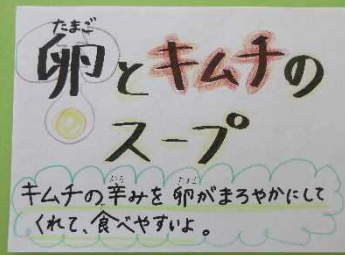 たまご
卵とキムチの
スープ
キムチの辛みを卵がまろやかにして
くれて、食べやすいよ。